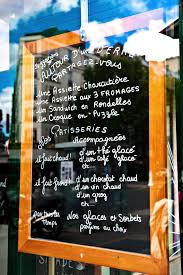 AUTOUR D'un VERRE
PARTAGEZ-VOUS
Une Assiette Charcutière
une Assiette aux 3 FROMAGES
un Sandwich en Rondelles
un Croque en "Puzzle"
Nos PATISSERIES
Accompagnées
il fait chaud! d'un thé glacé
d'un café "glacé"
etc...
il fait froid! d'un chocolat chaud
d'un vin chaud
d'un grog
etc...
Par tous les Temps Nos glaces et Sorbets
parfums au choix